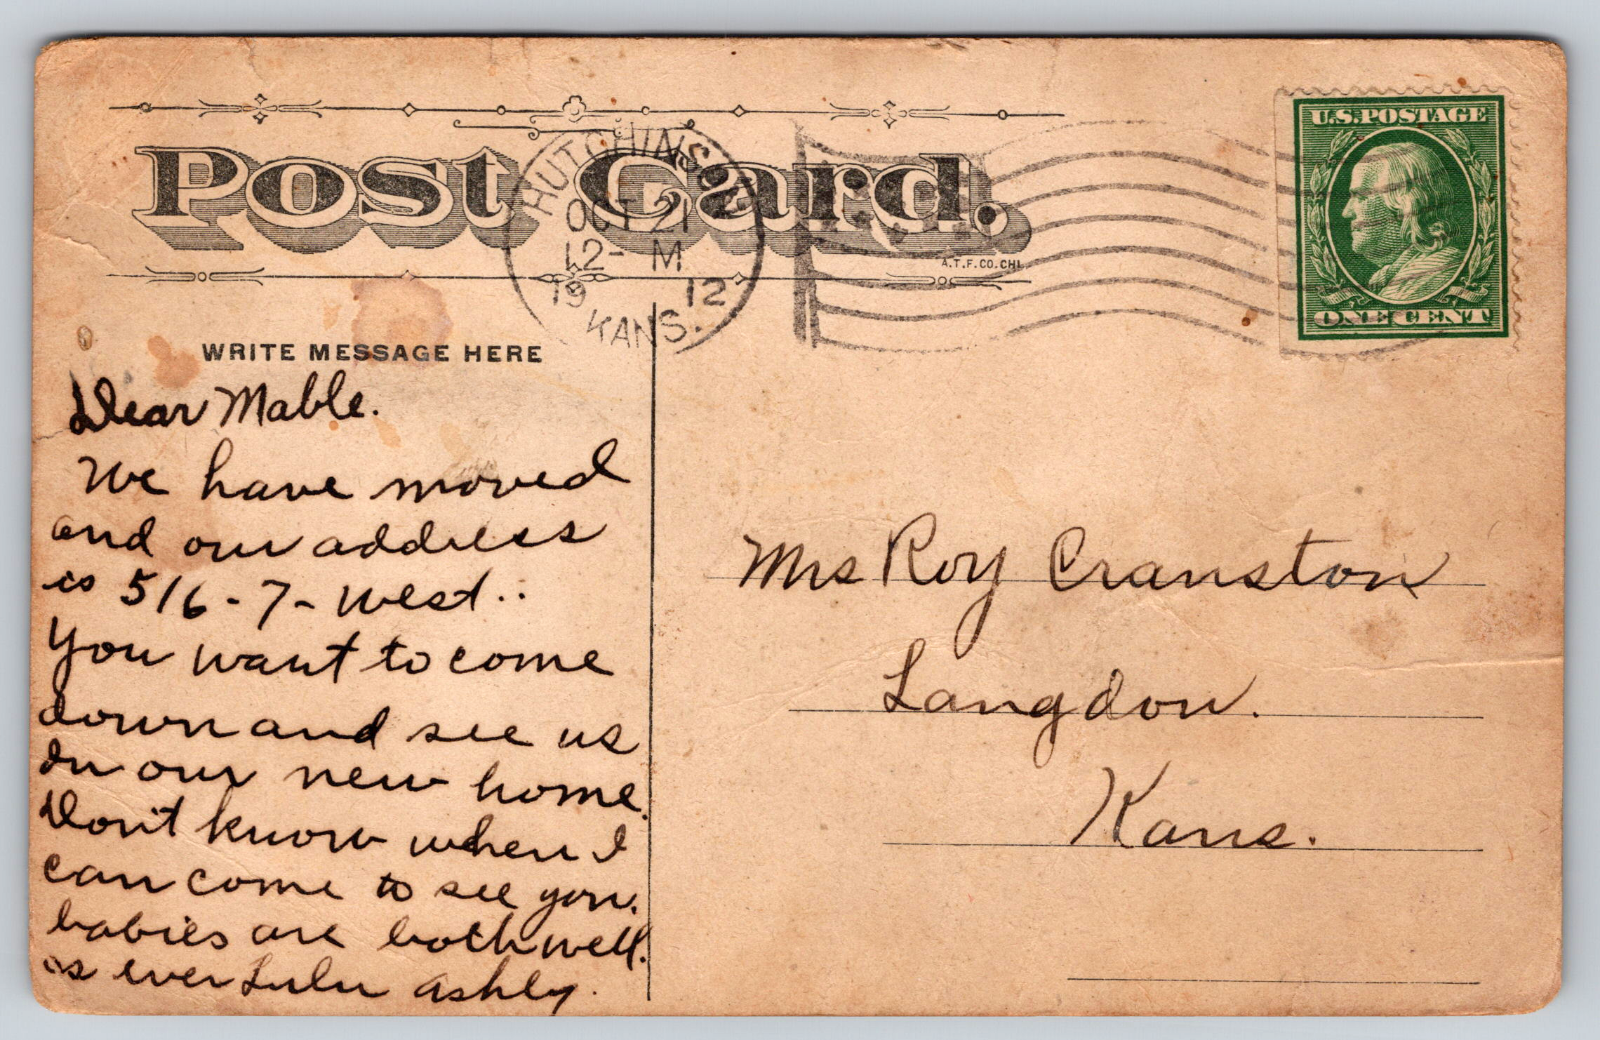 Post Card.
A.T.F.CO.CHI.
HUTCHINSON
OCT 21
12- M
19 12
KANS.
U.S.POSTAGE
ONE CENT
WRITE MESSAGE HERE
Dear Mable.
We have moved
and our address
is 516-7-West..
You want to come
down and see us
In our new home.
Don't know when I
can come to see you.
babies are both well.
as ever Lulu Ashby.
Mrs Roy Cranston
Langdon.
Kans.